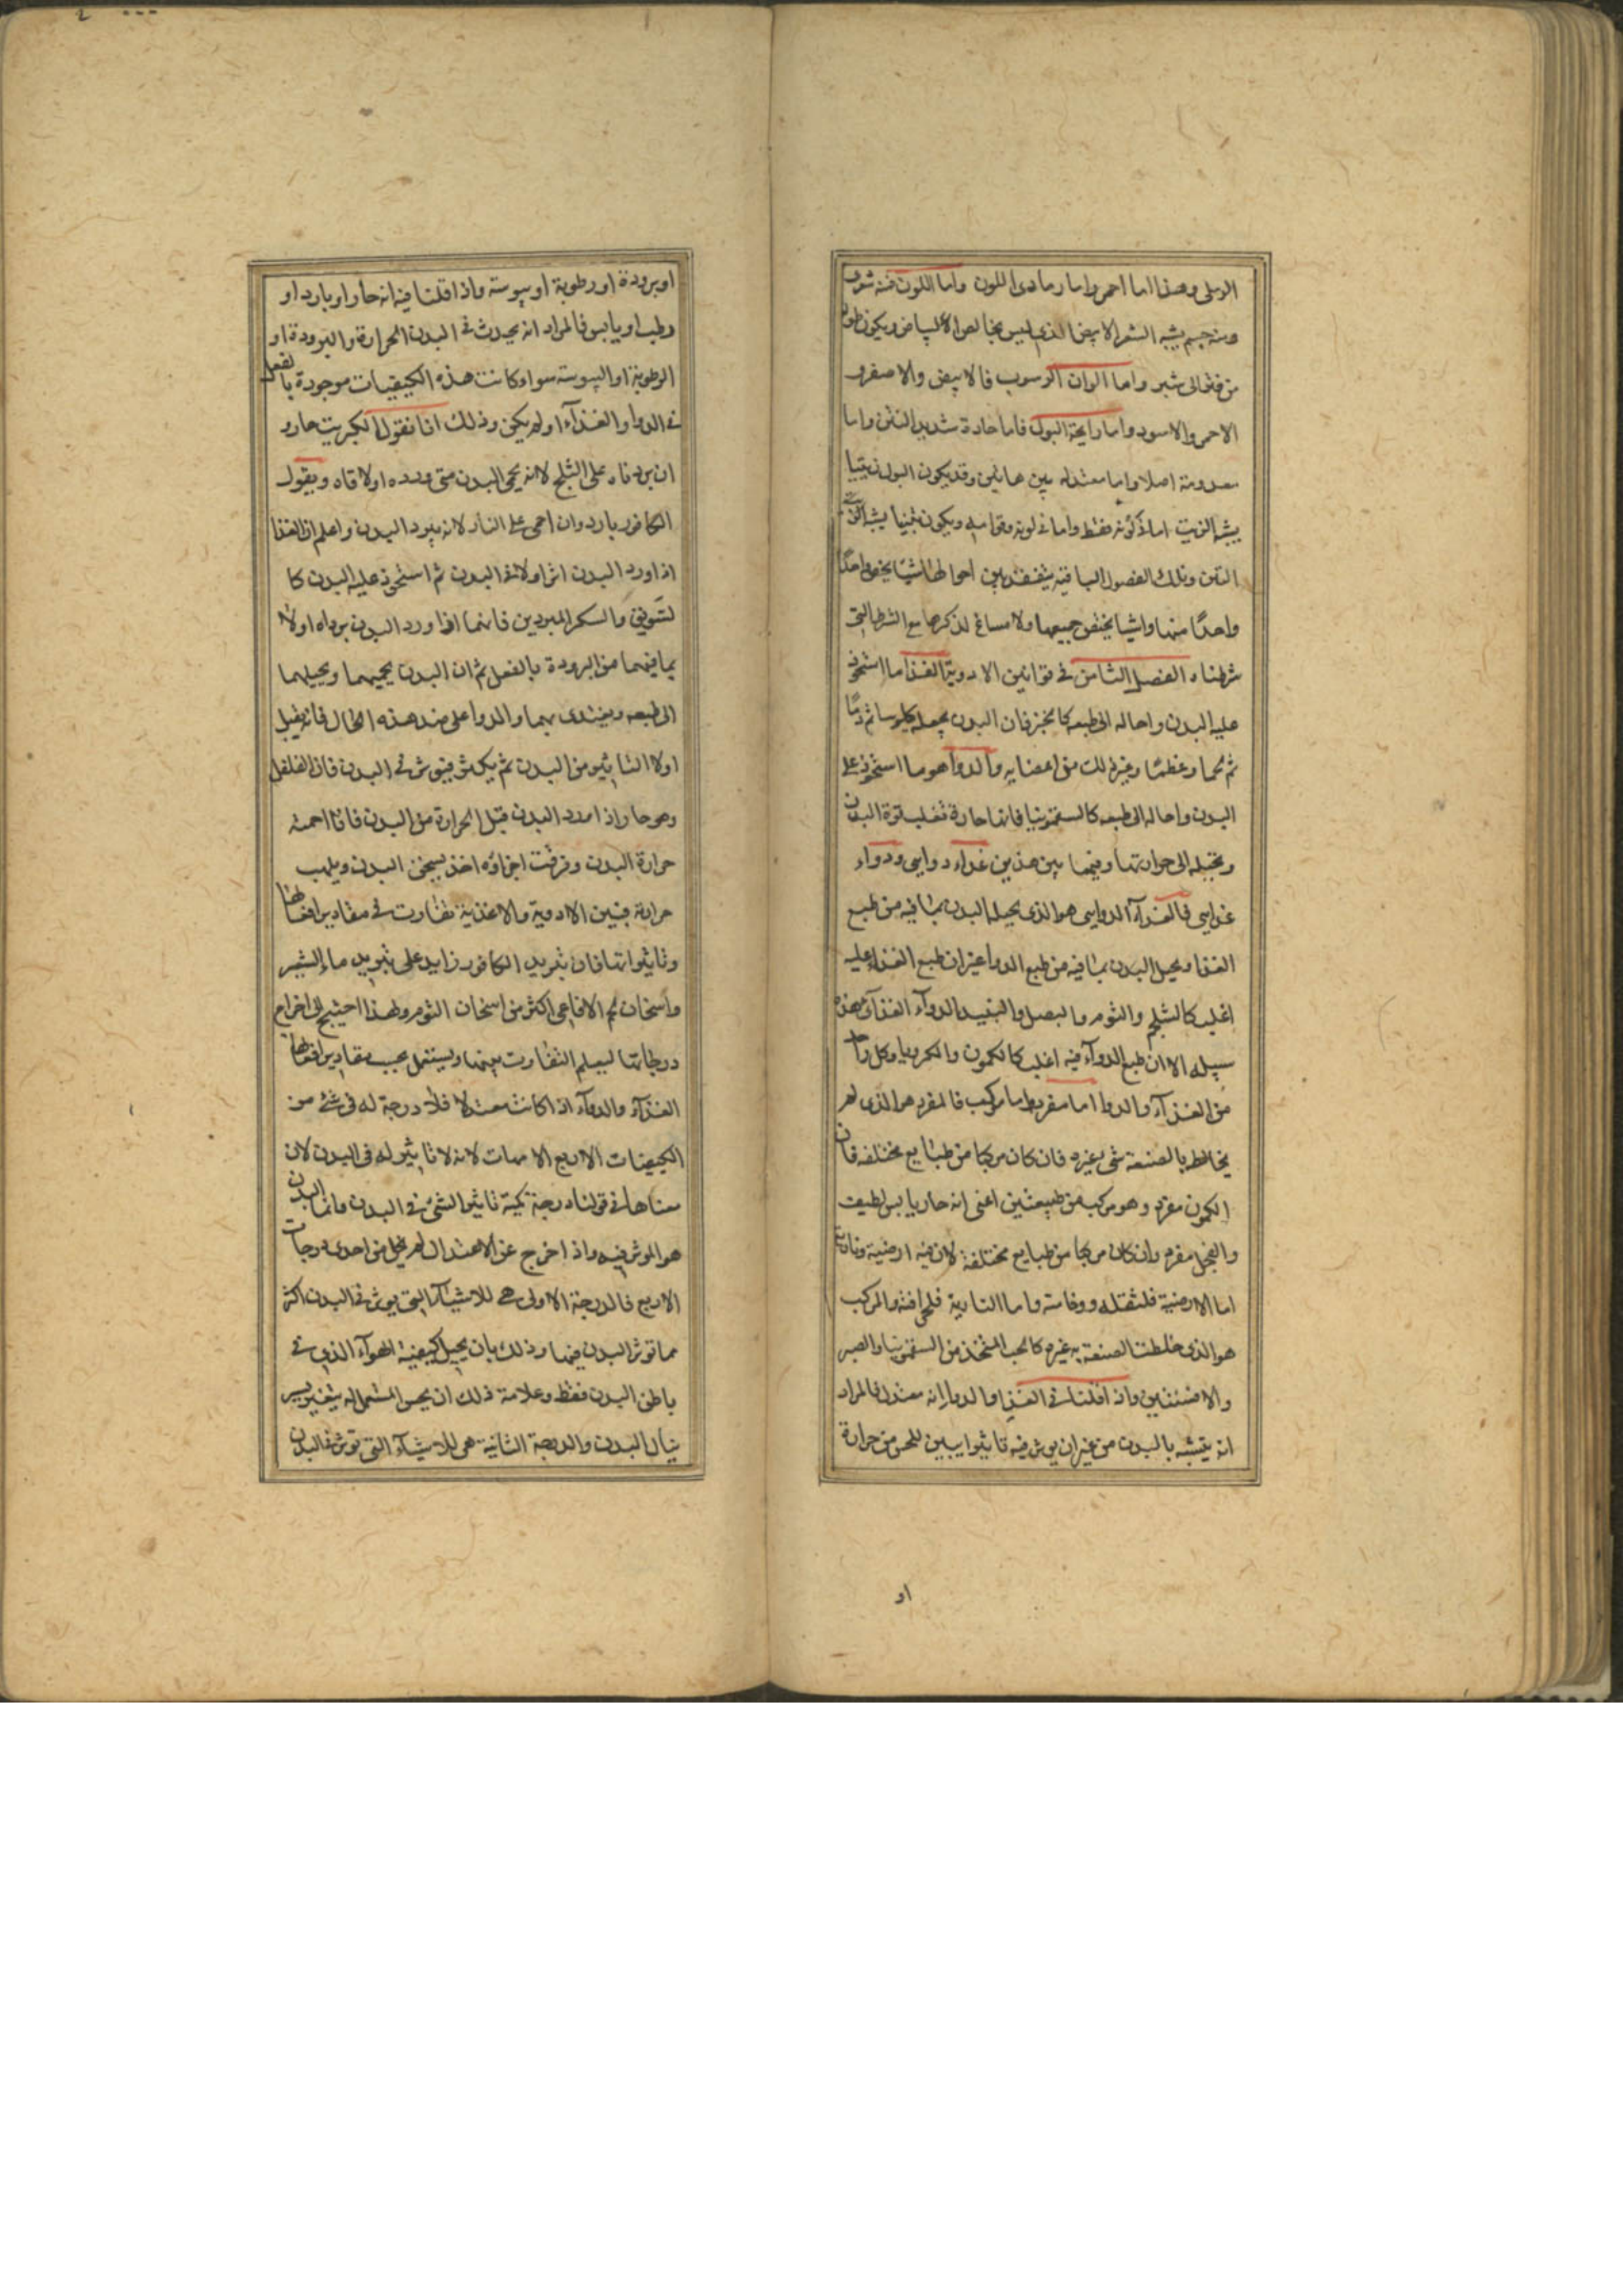 الرملى وهذا اما احمر واما رمادى اللون واما اللون فمنه شعرى
ومنه جسم يشبه الشعر الابيض الذى ليس بخالص البياض ويكون طوله
من فتر الى شبر واما الوان الرسوب فالابيض والاصفر
الاحمر والاسود واما رايحة البول فاما حادة شديد النتن واما
معدومة اصلا واما معتدله بين هاتين وقد يكون البول زيتيا
يشبه الزيت اما فى لونه فقط واما فى لونه وقوامه ويكون
التين وتلك الفصول الباقيه احوالها شيا يخص واحدًا
واحدًا منها واشيا يختص جميعها ولا مساغ لذكرها مع الشرط التى
شرطناه الفصل الثامن فى قوانين الادوية الغذا ما استحوذ
عليه البدن واحاله الى طبعه كالخبز فان البدن يجعله كيلوسا ثم دمًا
ثم لحما وعظمًا وغير ذلك من اعضايه والدوا هو ما استحوذ على
البدن واحاله الى طبعه كالسقمونيا فانها حارة تغلب قوة البدن
وتحيله الى حرارتها وفيما بين هذين غذاء دوايى ودواء
غذايى فالغذآء الدوايى هو الذى يحيله البدن بما فيه من طبع
الغذا ويحيل البدن بما فيه من طبع الدوا غير ان طبع الغذاء عليه
اغلب كالشلجم والثوم والبصل والنبيذ الدوآء الغذآى هذه
سبيله الا ان طبع الدوآء فيه اغلب كالكمون والكراويا وكل واحد
من الغذآء والدوا اما مفرد واما مركب فالمفرد هو الذى لم
يخالط بالصنعة شى بغيره فان كان مركبا من طبايع مختلفه فان
الكمون مفرد وهو مركب من طبيعتين اعنى انه حار يابس لطيف
والفجل مفرد وان كان مركبا من طبايع مختلفة لان فيه ارضية ونارية
اما الارضية فلثقله ووخامته واما النارية فلحرافته والمركب
هو الذى خلطت الصنعة به غيره كالحب المتخذ من السقمونيا والصبر
والافسنتين واذا قلنا فى الغذا والدوا انه معتدل فالمراد
انه يتشبه بالبدن من غير ان يوثر فيه تاثيرا يبين للحس من حرارة
او
او برودة او رطوبة او يبوسة واذا قلنا فيه انه حار او بارد او
رطب او يابس فالمراد انه يحدث فى البدن الحرارة والبرودة او
الرطوبة او اليبوسة سوا وكانت هذه الكيفيات موجودة بالفعل
فى الدوا والغذآء او لم يكن وذلك انا نقول الكبريت حار و
ان بردناه على الثلج لانه يحمى البدن متى ورده او لاقاه ونقول
الكافور بارد وان احمى على النار لانه يبرد البدن واعلم ان الغذا
اذا ورد البدن اثر اولا فى البدن ثم استحوذ عليه البدن كا
لسويق والسكر المبردين فانهما اذا ورد البدن برداه اولا
بما فيهما من البرودة بالفعل ثم ان البدن يحميهما ويحيلهما
الى طبعه ويغتذى بهما والدوا على ضد هذه الحال فانه يقبل
اولا التاثير من البدن ثم يكر فيوثر فى البدن فان الفلفل
وهو حار اذا ورد البدن قبل الحرارة من البدن فاذا احمته
حرارة البدن وفرقت اجزاؤه اخذ يسخن البدن ويلهب
حرارته فبين الادوية والاغذية تفاوت فى مقادير افعالها
وتاثيراتها فان تبريد الكافور زايد على تبريد ماء الشعير
واسخان لحم الافاعى اكثر من اسخان الثوم ولهذا احتيج الى اخراج
درجاتها ليعلم التفاوت بينها ويستعمل بحسب مقادير افعالها
الغذآء والدوآء اذا كانت معتدلا فلا درجة له فى شئ من
الكيفيات الاربع الامهات لانه لا تاثير له فى البدن لان
معناها فى قولنا درجة كمية تاثير الشئ فى البدن وانما البدن
هو الموثر فيه واذا خرج عن الاعتدال لم يخل من احدى درجات
الاربع فالدرجة الاولى هى للاشيآء التى يوثر فى البدن اكثر
مما توثر البدن فيها وذلك بان يحيل كيفية الهوآء الذى فى
باطن البدن فقط وعلامة ذلك ان يحس المستعمل له بتغير يسير
ينال البدن والدرجة الثانية هى للاشيآء التى توثر فى البدن